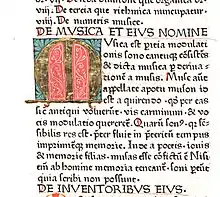 vii. De tercia que rithmica nuncupatur
viii. De numeris musice.
DE MVSICA ET EIVS NOMINE
Usica est pitia modulati
onis sono cantuq; cōsistēs
& dicta musica p deriua
tionē a musis. Muse aūt
appellate apo tu muson id
est a querendo. q per eas
sic antiqui voluerūt. vis carminum & vo
cis modulatio quereret. Quarū son. q sē
sibilis res est. per fluit in preteritū tempus
imprimitq; memorie. Inde a poetis. iouis
& memorie filias. musas esse cōfictū ē Nisi
eni ab homine memoria teneant. soni peūt
quia scribi non possunt.
DE INVENTORIBVS EIVS.